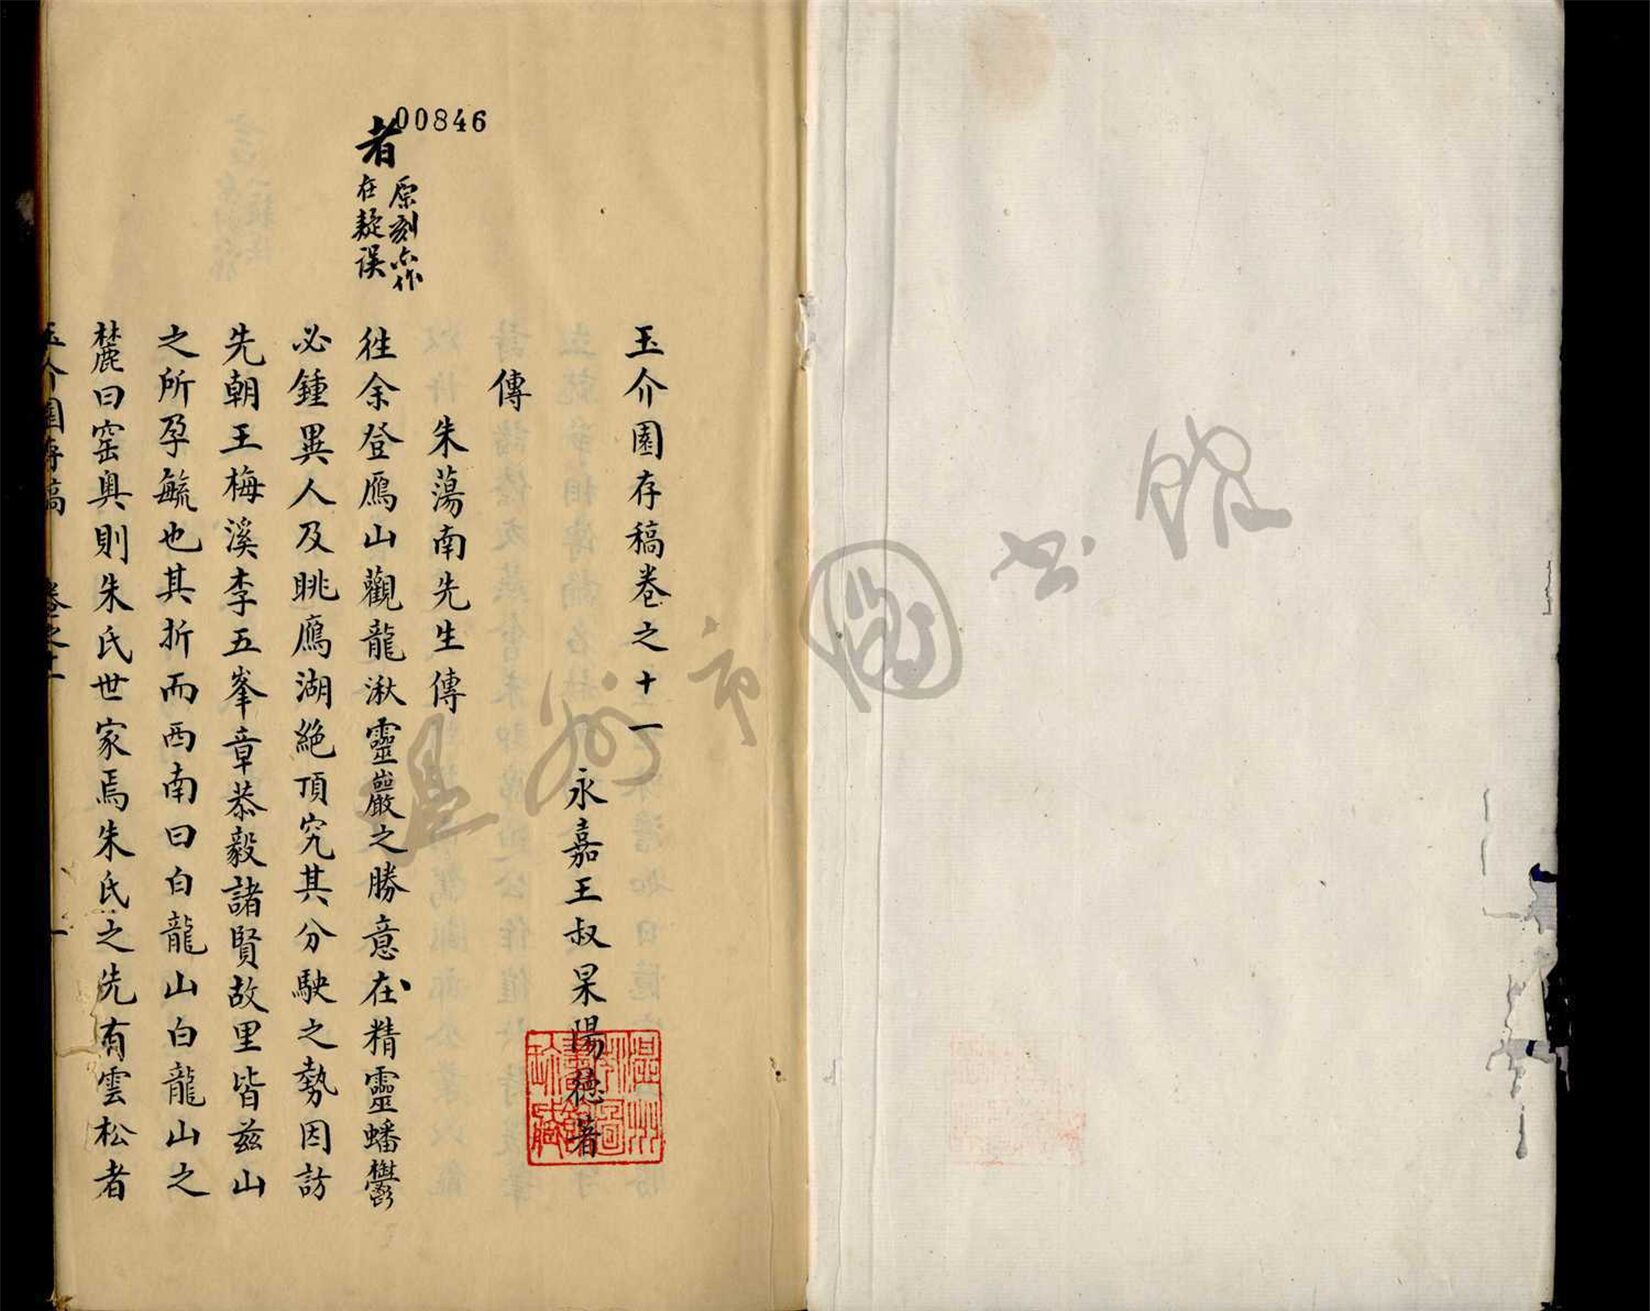 00846
者
原刻亦作
在疑誤
玉介園存稿卷之十一
永嘉王叔杲陽德著
傳
朱蕩南先生傳
往余登鴈山觀龍湫靈巖之勝意在精靈蟠鬱
必鍾異人及眺鴈湖絶頂究其分駛之勢因訪
先朝王梅溪李五峯章恭毅諸賢故里皆茲山
之所孕毓也其折而西南曰白龍山白龍山之
麓曰窑奥則朱氏世家焉朱氏之先有雲松者
玉介園存稿 卷之十一 一
温州市圖書館